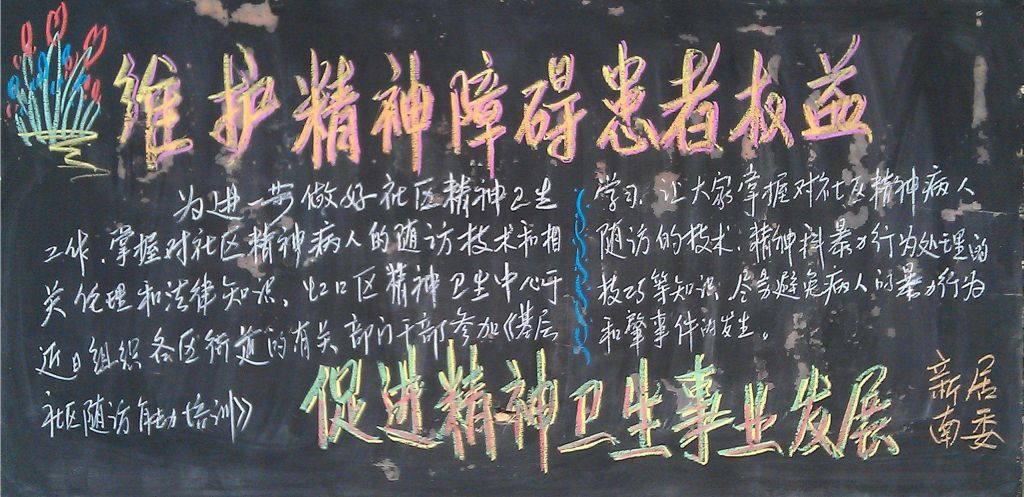 维护精神障碍患者权益
为进一步做好社区精神卫生
工作、掌握对社区精神病人的随访技术和相
关伦理和法律知识、虹口区精神卫生中心于
近日组织各区街道的有关部门干部参加《基层
社区随访能力培训》
学习，让大家掌握对社区精神病人
随访的技术、精神科暴力行为处理的
技巧等知识，尽量避免病人的暴力行为
和肇事件的发生。
促进精神卫生事业发展
新居
南委